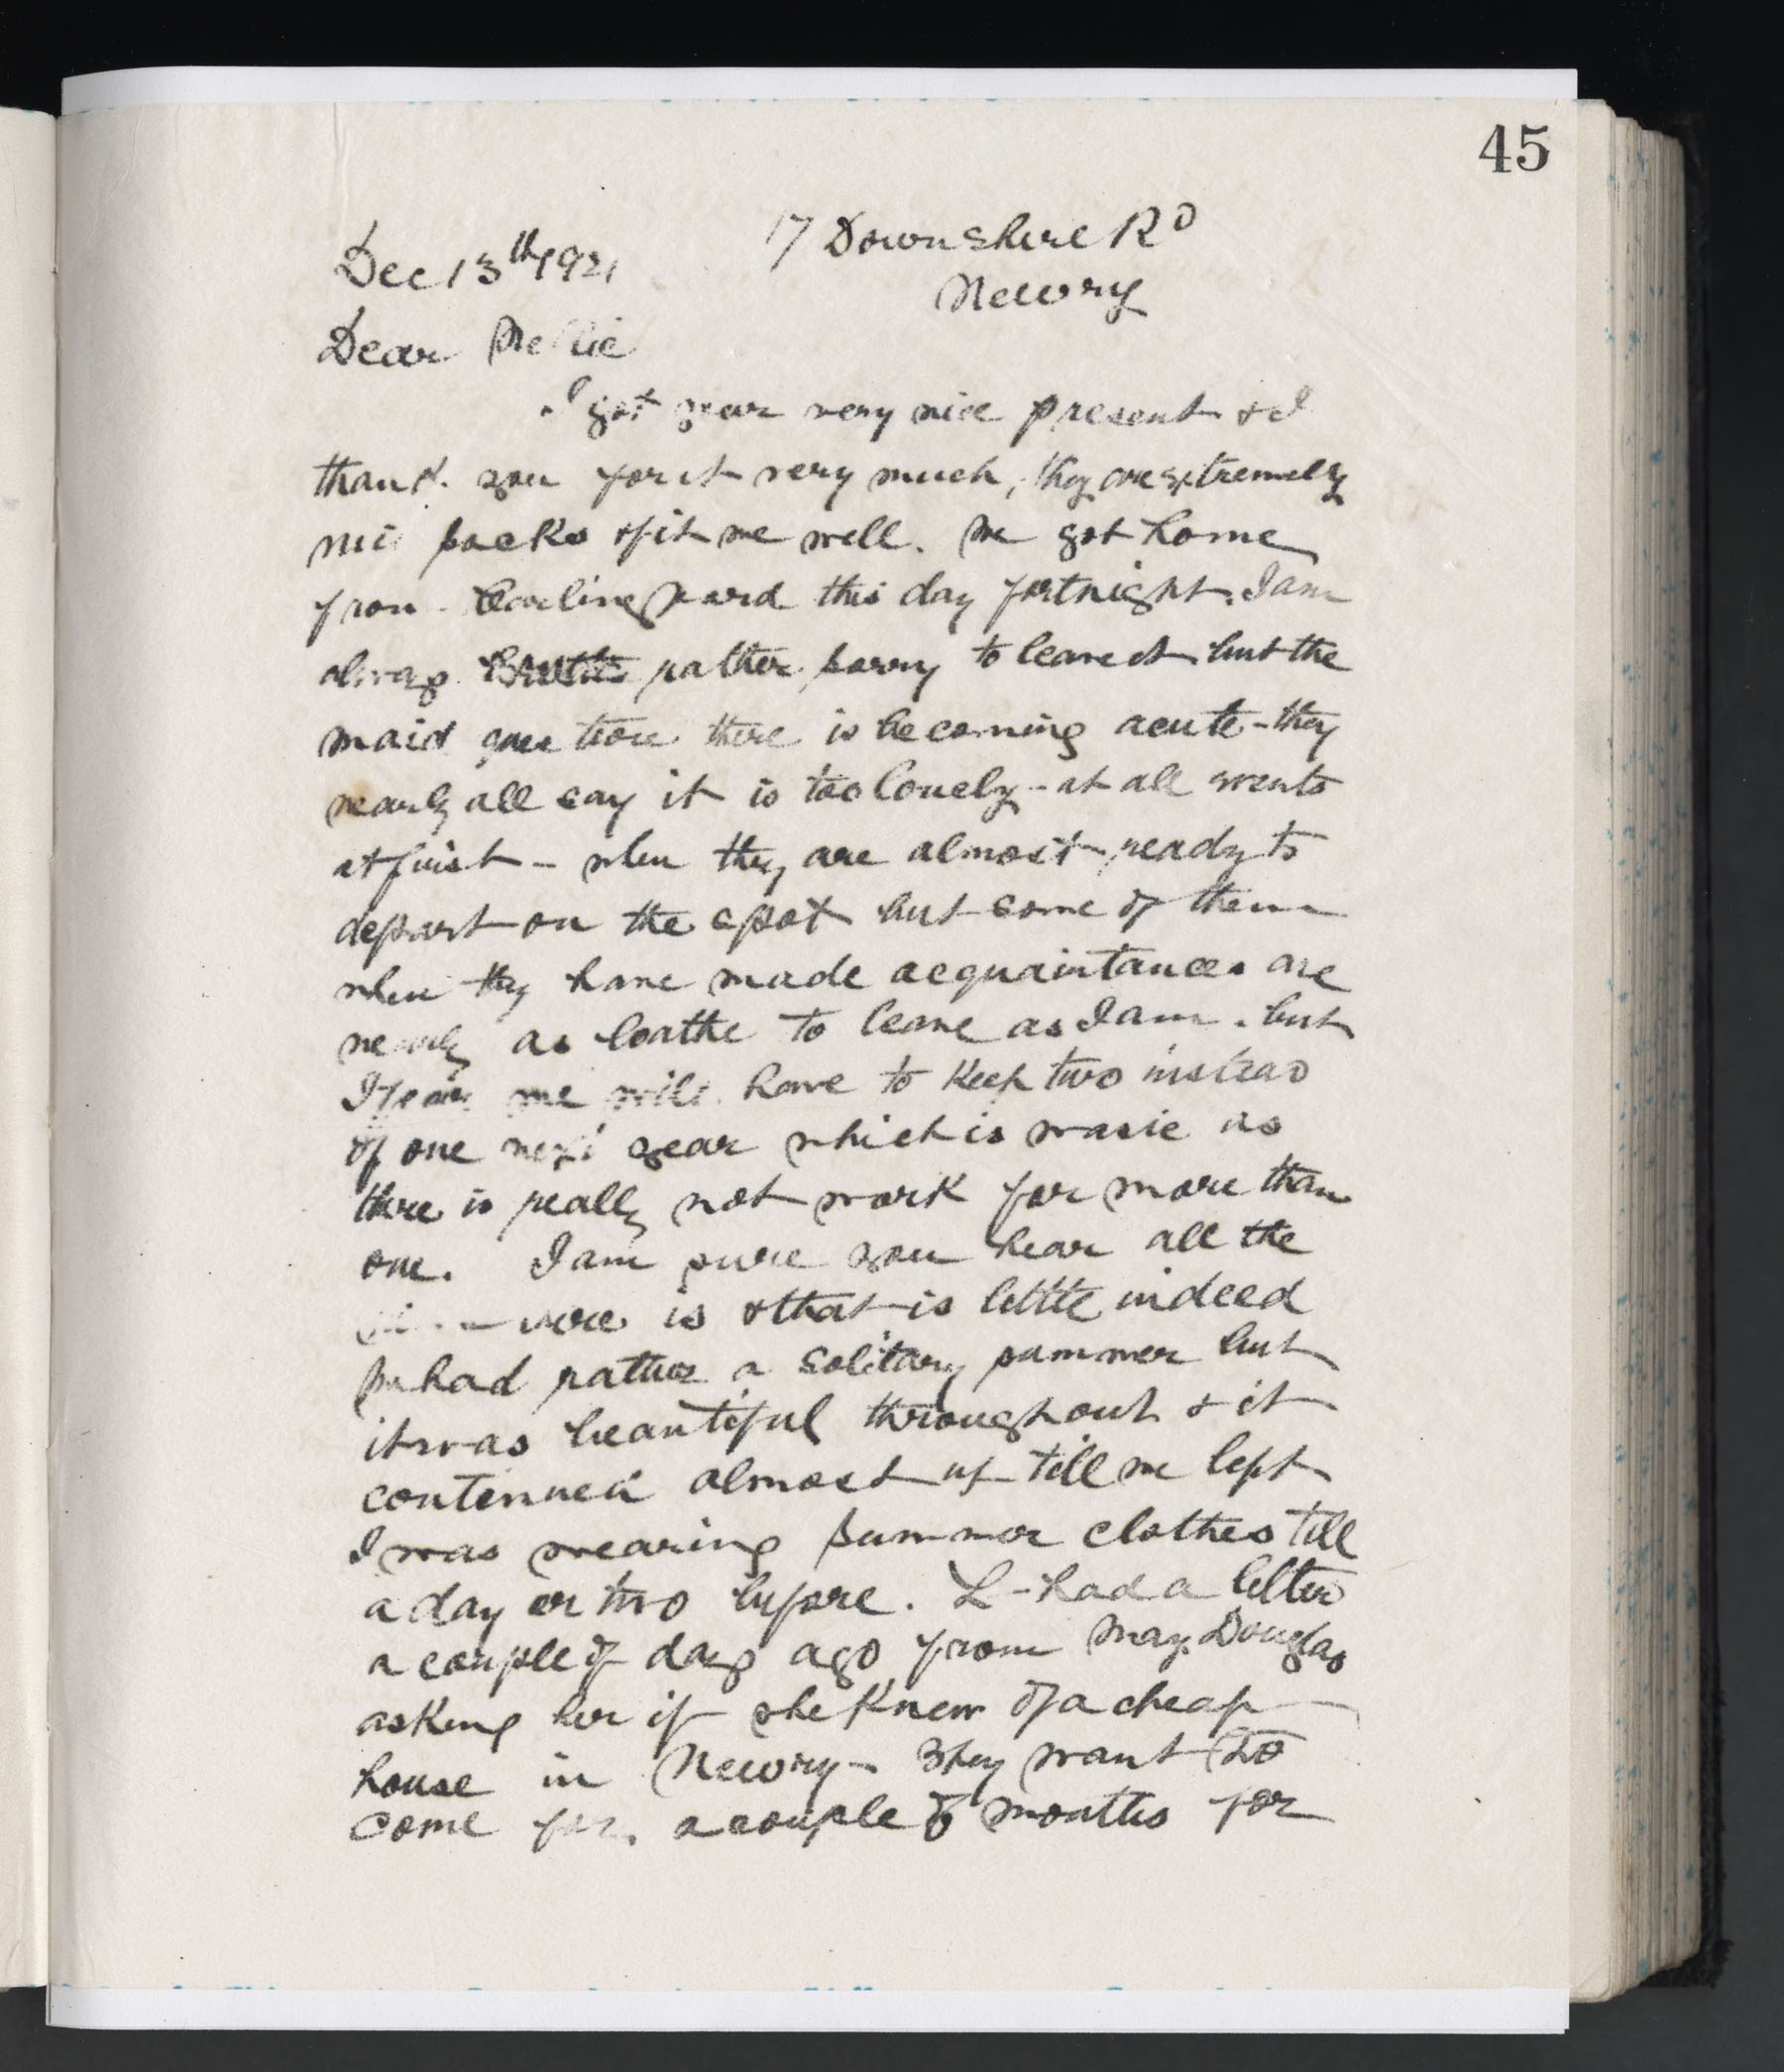 45
17 Downshire Rd
Dec 13th 1921
Newry
Dear Nellie
I got your very nice present & I
thank you for it very much, they are extremely
nice socks & fit me well. We got home
from Carlingford this day fortnight. I am
always rather sorry to leave it but the
maid question there is becoming acute - they
nearly all say it is too lonely - at all events
at first - when they are almost ready to
depart on the spot but some of them
when they have made acquaintances are
nearly as loathe to leave as I am. but
I fear we will have to keep two instead
of one next year which is waste as
there is really not work for more than
one. I am sure you hear all the
there is & that is little indeed
We had rather a solitary summer but
it was beautiful throughout & it
contenued almost up till we left
I was wearing summer clothes till
a day or two before. L - had a letter
a couple of days ago from May Douglas
asking her if she knew of a cheap
house in Newry - They want to
come for a couple of months for